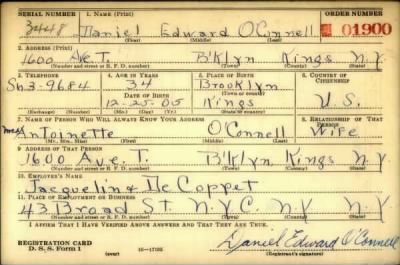 SERIAL NUMBER 1. NAME (Print) ORDER NUMBER
3448 Daniel Edward O'Connell 01900
(First) (Middle) (Last)
2. ADDRESS (Print)
1600 Ave. T. B'klyn Kings N.Y.
(Number and street or R. F. D. number) (Town) (County) (State)
3. TELEPHONE 4. AGE IN YEARS 5. PLACE OF BIRTH 6. COUNTRY OF CITIZENSHIP
34 Brooklyn
Sh3-9684 DATE OF BIRTH (Town or county)
12-25-05 Kings U.S.
(Exchange) (Number) (Mo.) (Day) (Yr.) (State or country)
7. NAME OF PERSON WHO WILL ALWAYS KNOW YOUR ADDRESS 8. RELATIONSHIP OF THAT PERSON
Mrs Antoinette O'Connell Wife
(Mr., Mrs., Miss) (First) (Middle) (Last)
9. ADDRESS OF THAT PERSON
1600 Ave. T. B'klyn Kings N.Y.
(Number and street or R. F. D. number) (Town) (County) (State)
10. EMPLOYER'S NAME
Jacquelin & De Coppet
11. PLACE OF EMPLOYMENT OR BUSINESS
43 Broad St. N.Y.C. N.Y. N.Y
(Number and street or R. F. D. number) (Town) (County) (State)
I AFFIRM THAT I HAVE VERIFIED ABOVE ANSWERS AND THAT THEY ARE TRUE.
REGISTRATION CARD Daniel Edward O'Connell
D. S. S. Form 1 (over) 16-17105 (Registrant's signature)